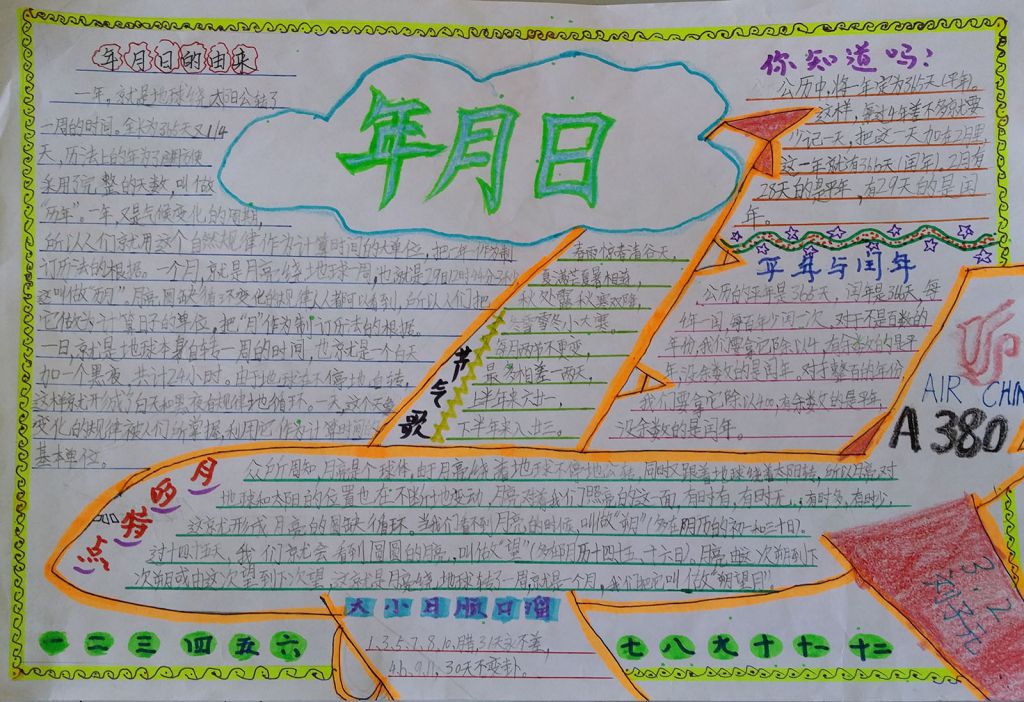 年月日的由来
一年，就是地球绕太阳公转了
一周的时间。全长为365天又1/4
天，历法上的年为了方便
采用了完整的天数，叫做
“历年”。一年，又是气候变化的周期，
所以人们就用这个自然规律作为计算时间的大单位，把一年作为制
订历法的根据。一个月，就是月亮绕地球一周，也就是29日12时44分3秒，
这叫做“朔月”。月亮圆缺循环变化的规律人人都可以看到，所以人们把
它做为计算日子的单位，把“月”作为制订历法的根据。
一日，就是地球本身自转一周的时间，也就是一个白天
加一个黑夜，共计24小时。由于地球在不停地自转，
这样就形成了白天和黑夜有规律地循环。一天，这个天象
变化的规律被人们所掌握，利用它作为计算时间的
基本单位。
年月日
你知道吗？
公历中，将一年定为365天（平年）。
这样，每过4年差不多就要
少记一天，把这一天加在2月里，
这一年就有366天（闰年）。2月有
28天的是平年，有29天的是闰
年。
平年与闰年
公历的平年是365天，闰年是366天，每
4年一闰，每百年少闰一次，对于不是百数的
年份，我们要拿它除以4，有余数的是平
年，没余数的是闰年。对于整百的年份，
我们要拿它除以400，有余数的是平年，
没余数的是闰年。
节气歌
春雨惊春清谷天，
夏满芒夏暑相连，
秋处露秋寒霜降，
冬雪雪冬小大寒。
每月两节不更变，
最多相差一两天，
上半年来六廿一，
下半年来八廿三。
AIR CHIN
A380
月四特点
众所周知，月亮是个球体，由于月亮绕着地球不停地公转，同时又跟着地球绕着太阳转，所以月亮对
地球和太阳的位置也在不断地变动，月亮对着我们照亮的这一面，有时有，有时无，有时多，有时少，
这就形成月亮的圆缺循环。当我们看不到月亮的时候，叫做“朔”（多在阴历的初一和三十日）。
过十四五天，我们就会看到圆圆的月亮，叫做“望”（多在阴历十四十五、十六日）。月亮由这次朔到下
次朔或由这次望到下次望，这就是月亮绕地球转了一周，就是一个月，我们把它叫做“朔望月”。
大小月顺口溜
1.3.5.7.8.10.腊，31天永不差，
4.6.9.11，30天不变卦。
一 二 三 四 五 六
七 八 九 十 十一 十二
3.2